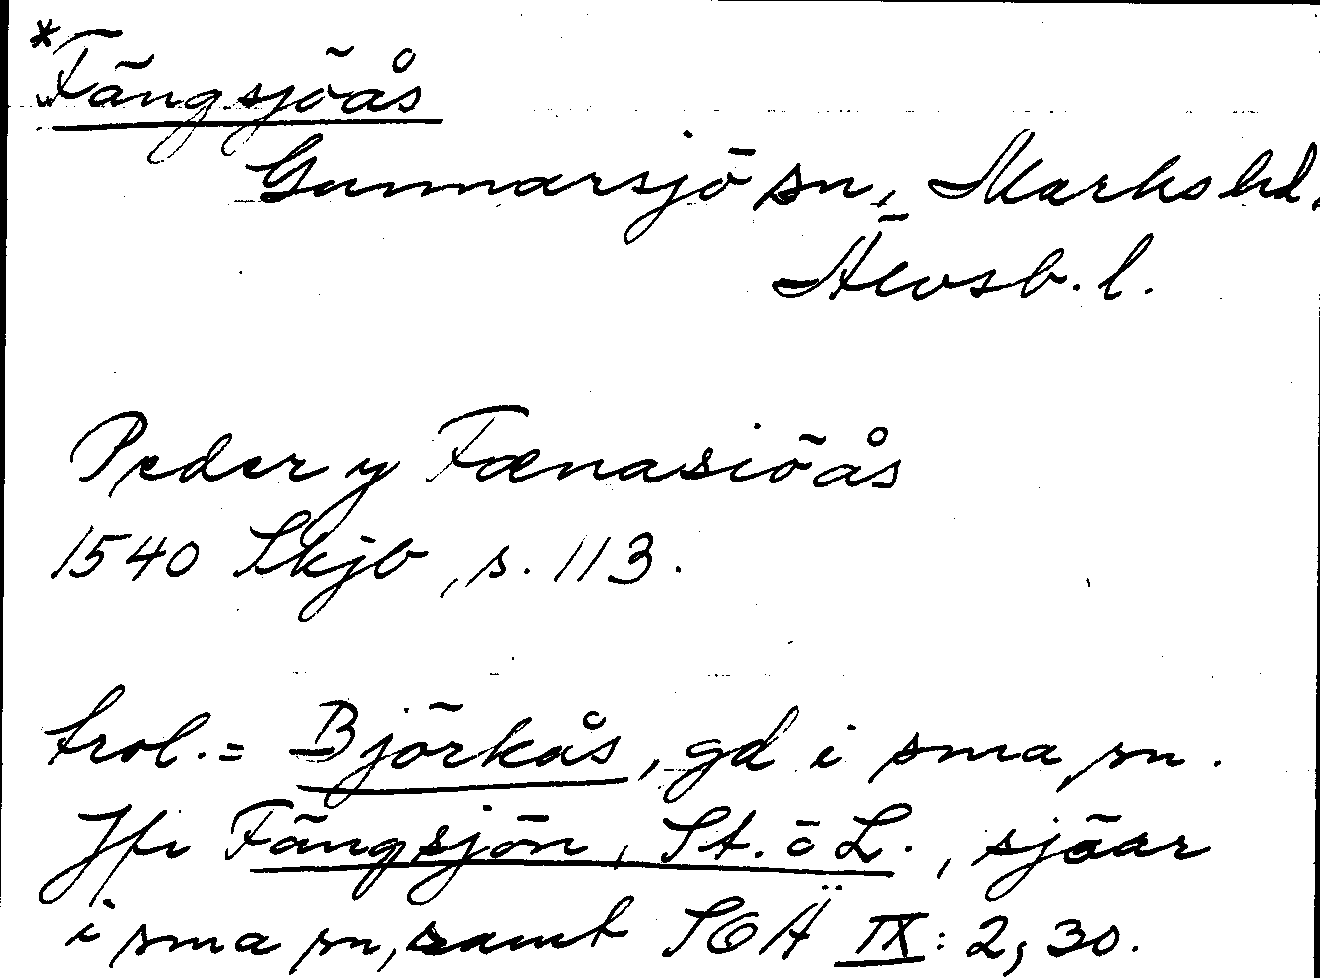 *Fängsjöås
Gunnarsjö sn, Marks hd,
Älvsb. l.
Peder y Fænasiöås
1540 Skjb, s. 113.
trol. = Björkås, gd i sma sn.
Jfr Fängsjön, St. ö L., sjöar
i sma sn, samt SOÄ IX: 2, 30.